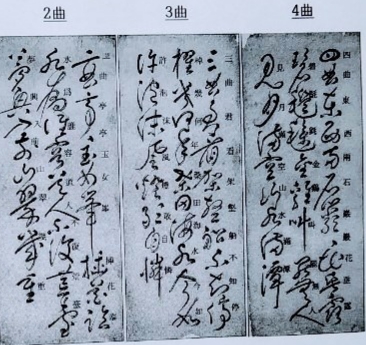 2曲
二曲亭亭玉女峰插花臨
水為誰容道人不復荒臺
夢興入前山翠幾重
3曲
三曲君看架壑船不知停
棹幾何年桑田海水今如
許泡沫風燈敢自憐
4曲
四曲東西兩石巖巖花垂露
碧毿金鷄叫罷無人
見月滿空山水滿潭